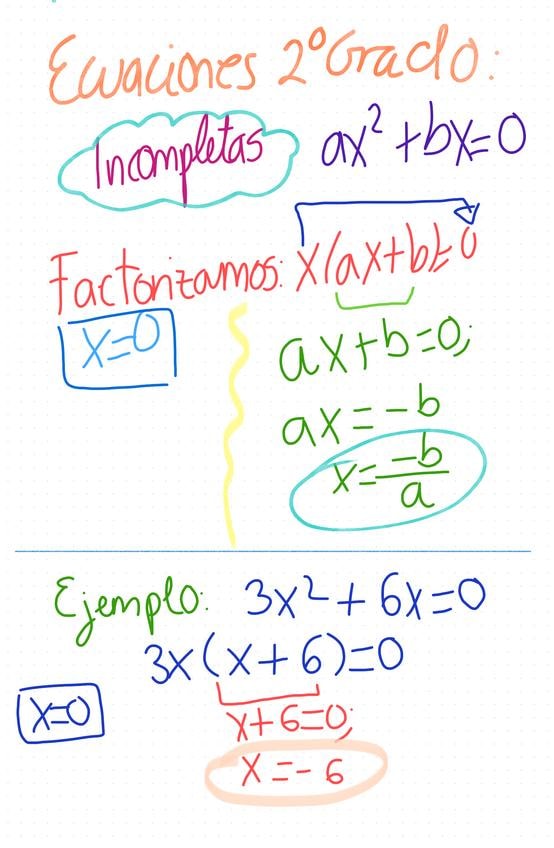 Ecuaciones 2º Grado:
Incompletas ax² + bx = 0
Factorizamos: x(ax+b)=0
x=0
ax+b=0;
ax = -b
x = -b/a
Ejemplo: 3x² + 6x = 0
3x(x+6)=0
x=0
x+6=0;
x = -6